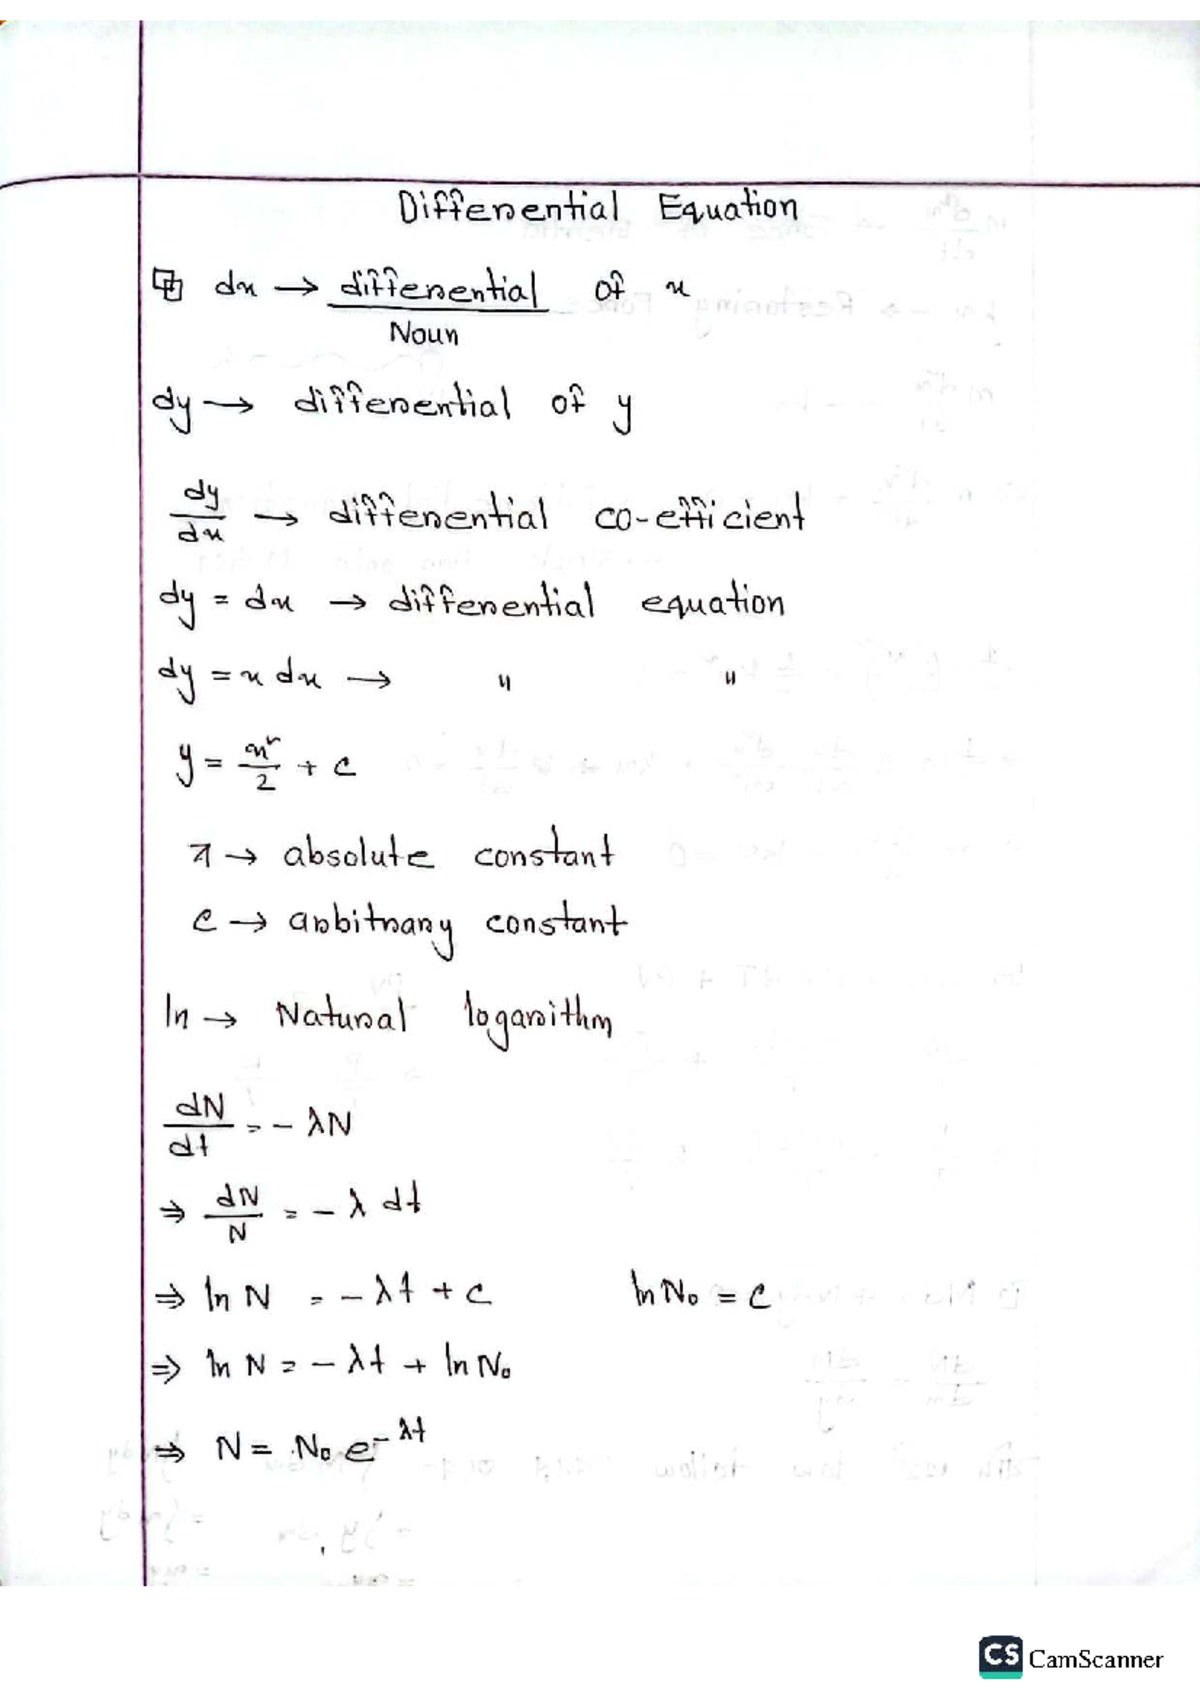 Differential Equation
dx → differential of x
Noun
dy → differential of y
dy/dx → differential co-efficient
dy = dx → differential equation
dy = x dx → " "
y = x²/2 + c
π → absolute constant
c → arbitrary constant
ln → Natural logarithm
dN/dt = - λN
⇒ dN/N = - λ dt
⇒ ln N = - λt + c    ln N₀ = c
⇒ ln N = - λt + ln N₀
⇒ N = N₀ e^{-λt}
CS CamScanner